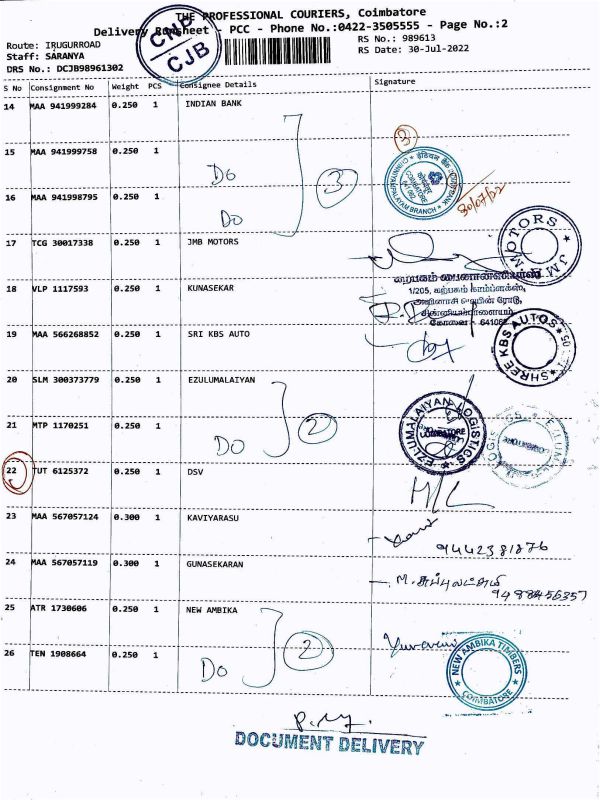 THE PROFESSIONAL COURIERS, Coimbatore
Delivery Runsheet - PCC - Phone No.:0422-3505555 - Page No.:2
CNP
CJB
Route: IRUGURROAD
RS No.: 989613
Staff: SARANYA
RS Date: 30-Jul-2022
DRS No.: DCJB98961302
S No Consignment No Weight PCS Consignee Details Signature
14 MAA 941999284 0.250 1 INDIAN BANK
3
15 MAA 941999758 0.250 1
Do
3
இந்தியன் வங்கி
COIMBATORE
16 MAA 941998795 0.250 1
Do
30/07/22
17 TCG 30017338 0.250 1 JMB MOTORS
MOTORS
கற்பகம் பைனான்சியர்ஸ்
18 VLP 1117593 0.250 1 KUNASEKAR
1/205, கற்பகம் காம்ப்ளக்ஸ்,
அவினாசி மெயின் ரோடு,
சின்னியம்பாளையம்,
கோவை - 641062
19 MAA 566268852 0.250 1 SRI KBS AUTO
SHREE KBS AUTOS
20 SLM 300373779 0.250 1 EZULUMALAIYAN
21 MTP 1170251 0.250 1
Do
2
EZLUMALAIYAN LOGISTICS
COIMBATORE
22 TUT 6125372 0.250 1 DSV
23 MAA 567057124 0.300 1 KAVIYARASU
9442381876
24 MAA 567057119 0.300 1 GUNASEKARAN
M. சுப்புலட்சுமி
9488456357
25 ATR 1730606 0.250 1 NEW AMBIKA
26 TEN 1908664 0.250 1
Do
2
NEW AMBIKA TIMBERS
COIMBATORE
DOCUMENT DELIVERY